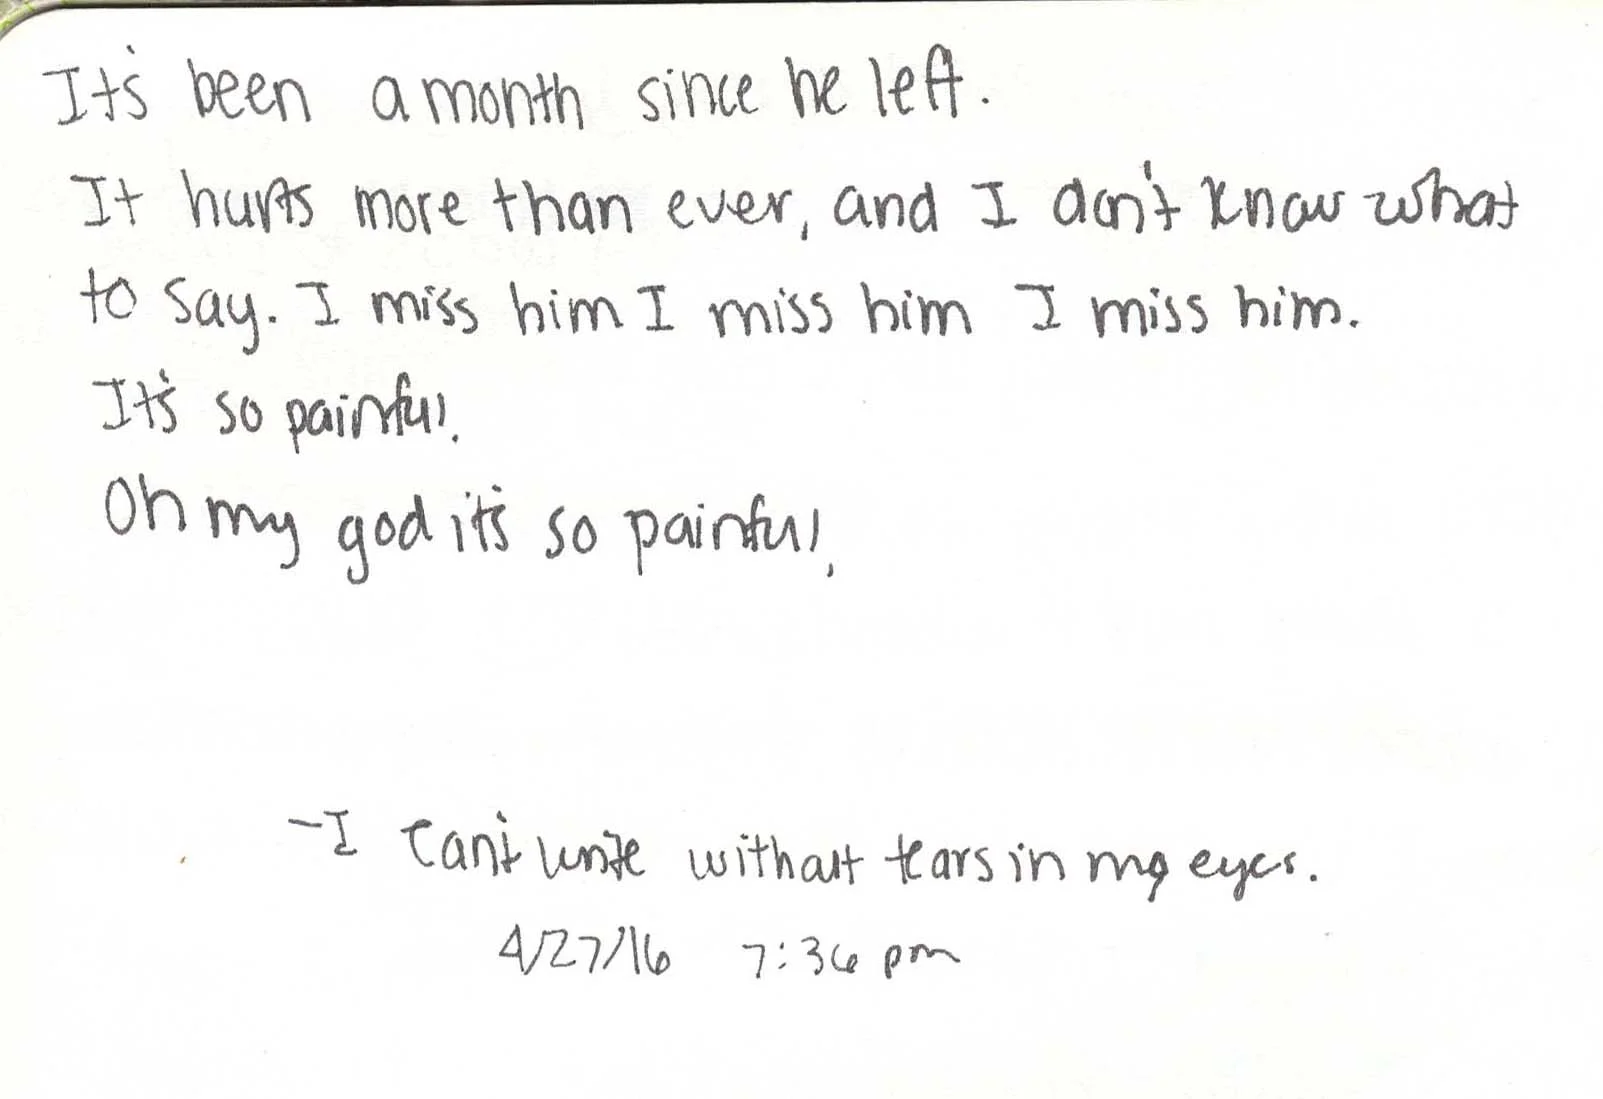 It's been a month since he left.
It hurts more than ever, and I don't know what
to say. I miss him I miss him I miss him.
It's so painful.
Oh my god it's so painful,
-I can't write without tears in my eyes.
4/27/16 7:36 pm